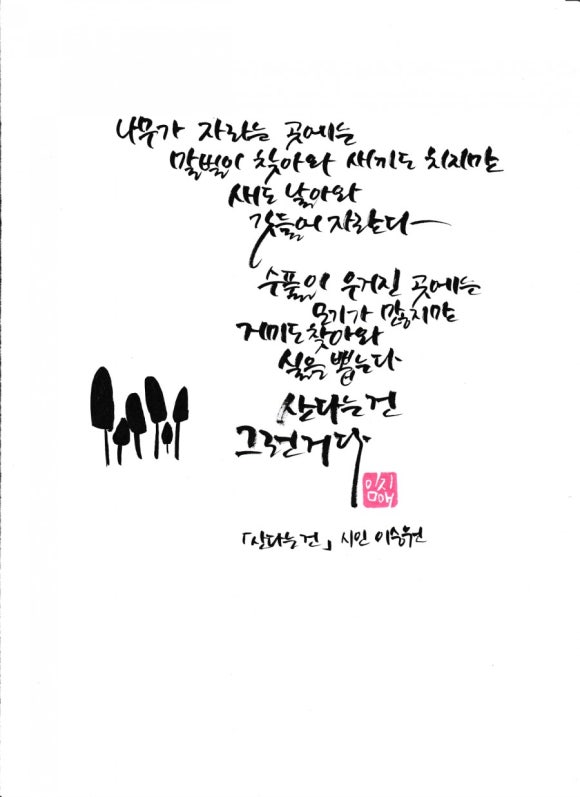 나무가 자라는 곳에는
말벌이 찾아와 새끼도 치지만
새도 날아와
깃들어 자란다
수풀이 우거진 곳에는
모기가 많지만
거미도 찾아와
실을 뽑는다
산다는건
그런거다
임지애
「산다는건」 시인 이승원